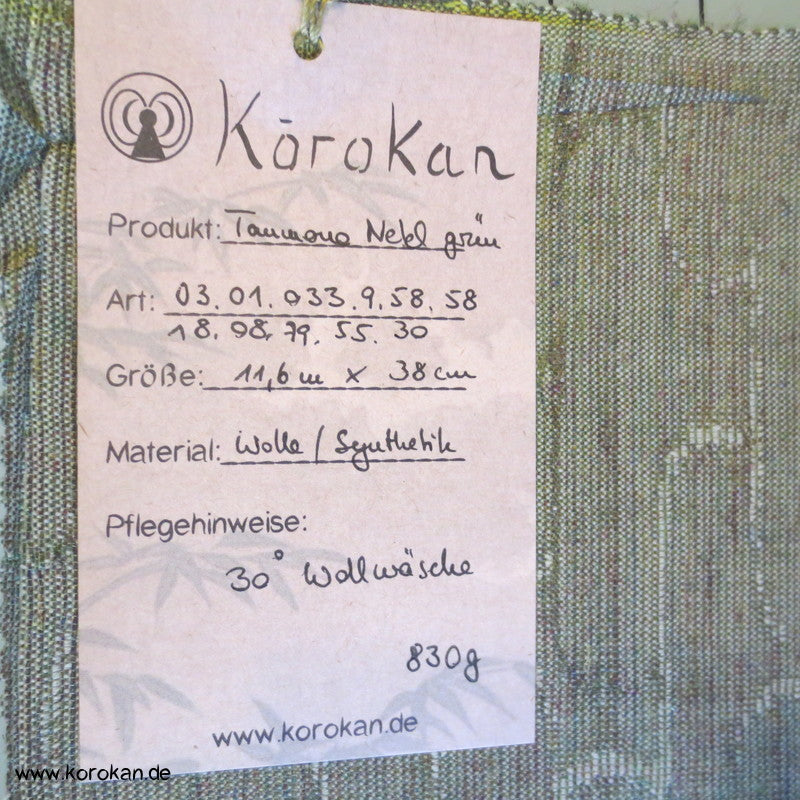 Korokan
Produkt: Tanmono Nebel grün
Art: 03.01.033.9.58.58
18.98.79.55.30
Größe: 11,6m x 38cm
Material: Wolle / Synthetik
Pflegehinweise:
30° Wollwäsche
830g
www.korokan.de
www.korokan.de